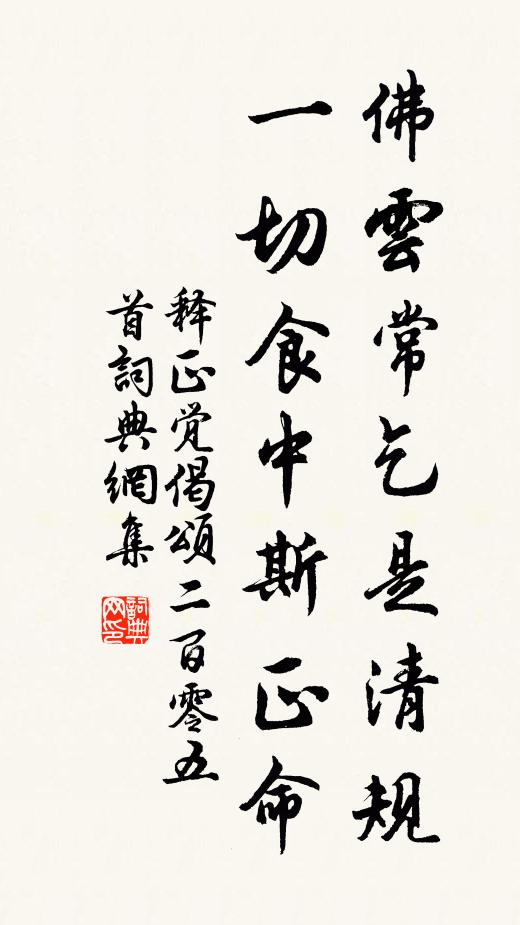 佛雲常乞是清規
一切食中斯正命
释正觉偈頌二百零五
首詞典網集
詞典
网印